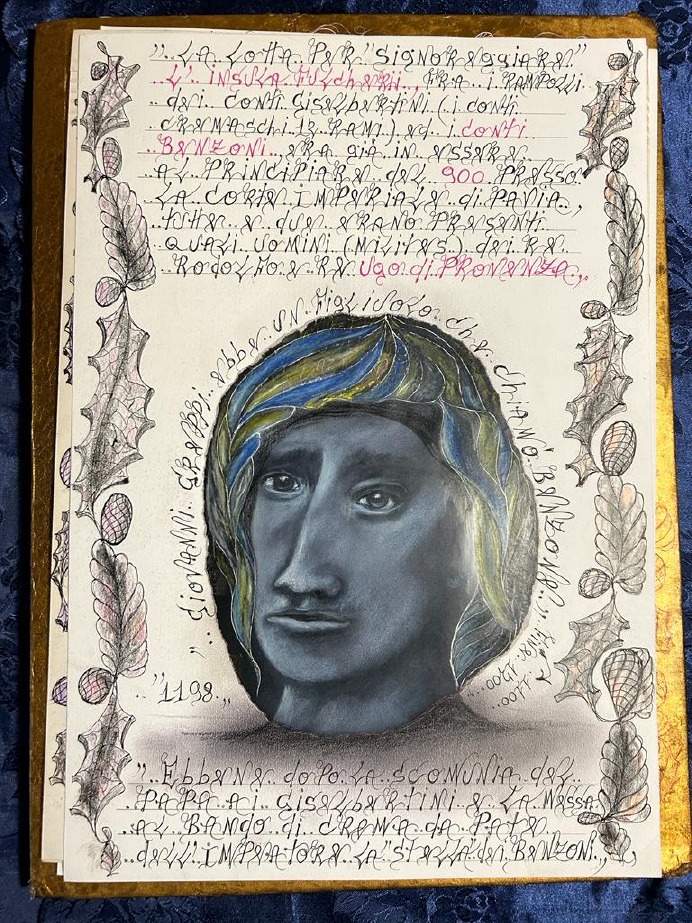 ".. LA LOTTA PER "SIGNOREGGIARE"
L'.. INSULA FULCHERII.., FRA.. i RAMPOLLI
.. dEi.. CONTi GISELBERTINI (i CONTi
.. CREMASChi..) Ed.. i CONTi
.. BENZONi.. ERA GIÀ IN ESSERE..
AL PRINCIPIARE.. dEL 900 PRESSO..
LA CORTE IMPERIALE di PAVIA..,
TUTTI E dUE ERANO PRESENTi
.. QUALi UOMINI (MILITES..) dEi RE..
.. RODOLFO.. E RE UGO di PROVENZA..,.
".. GiOVANNi.. EBBE UN FIGLIUOLO.. ChE ChIAMÒ BENZONE..
1100..1200..
.."1198..
".. EBBENE dOPO LA SCOMUNIA dEL..
.. PAPA Ai GISELBERTINI E LA MESSA
.. AL BANDO di CREMA dA PARTE
.. dELL'IMPERATORE LA "STELLA" dEi BENZONi..,